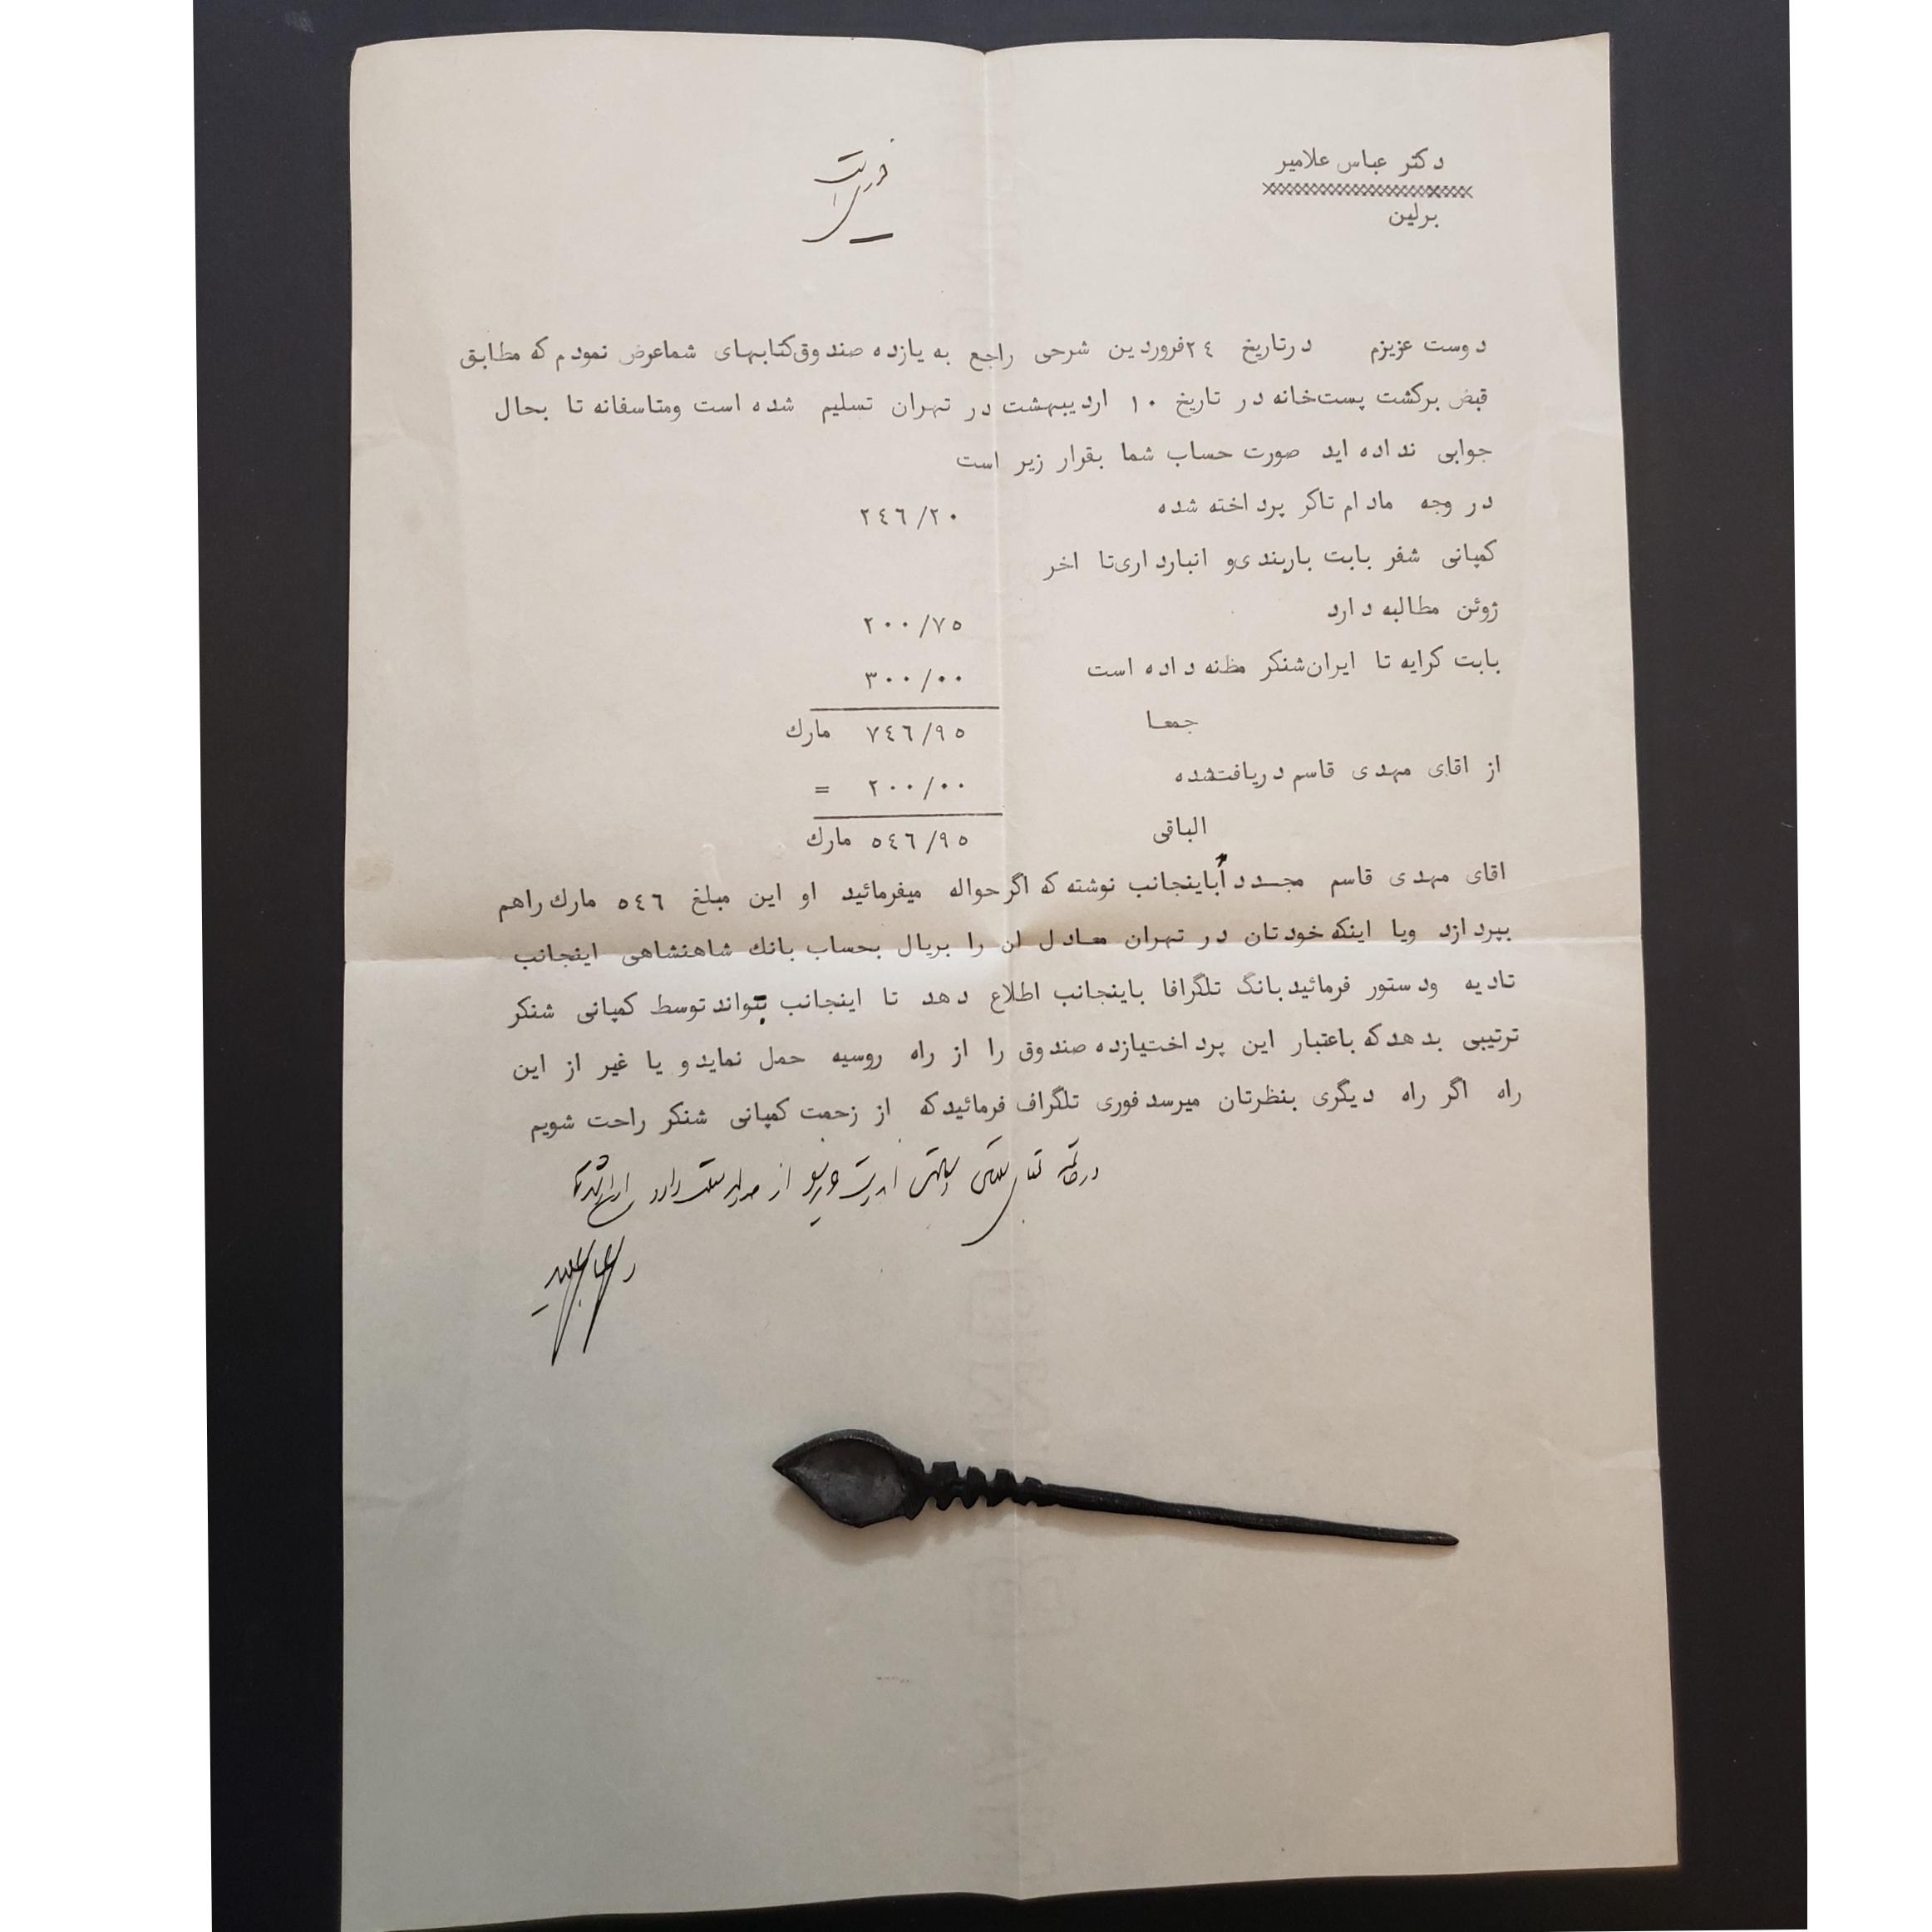 دکتر عباس علامیر
برلین
فوریست
دوست عزیزم درتاریخ ٢٤فروردین شرحی راجع به یازده صندوق‌کتابهای شماعرض نمودم که مطابق
قبض برکشت پست‌خانه در تاریخ ١٠ اردیبهشت در تهران تسلیم شده است ومتاسفانه تا بحال
جوابی نداده اید صورت حساب شما بقرار زیر است
در وجه مادام تاکر پرداخته شده ٢٤٦/٢٠
کمپانی شفر بابت باربندی‌و انبارداری‌تا اخر
ژوئن مطالبه دارد ٢٠٠/٧٥
بابت کرایه تا ایران‌شنکر مظنه داده است ٣٠٠/٠٠
جمعا ٧٤٦/٩٥ مارك
از اقای مهدی قاسم دریافت‌شده ٢٠٠/٠٠ =
الباقی ٥٤٦/٩٥ مارك
اقای مهدی قاسم مجددأباینجانب نوشته که اگرحواله میفرمائید او این مبلغ ٥٤٦ مارك راهم
بپردازد ویا اینکه خودتان در تهران معادل ان را بریال بحساب بانك شاهنشاهی اینجانب
تادیه ودستور فرمائیدبانگ تلگرافا باینجانب اطلاع دهد تا اینجانب بتواند توسط کمپانی شنکر
ترتیبی بدهدکه باعتبار این پرداخت‌یازده صندوق را از راه روسیه حمل نمایدو یا غیر از این
راه اگر راه دیگری بنظرتان میرسد فوری تلگراف فرمائیدکه از زحمت کمپانی شنکر راحت شویم
درخاتمه